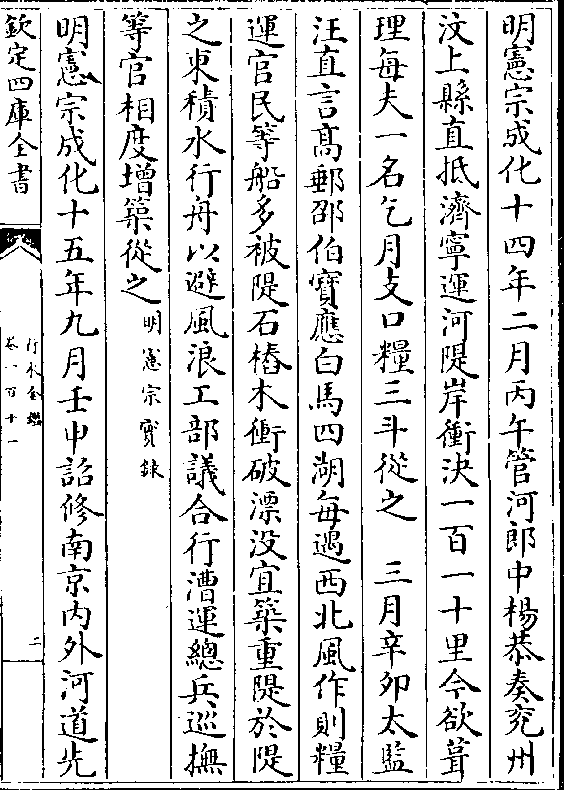 明憲宗成化十四年二月丙午管河郎中楊恭奏兖州
汶上縣直抵濟寧運河隄岸衝決一百一十里今欲葺
理每夫一名乞月支口糧三斗從之　三月辛卯太監
汪直言髙郵邵伯寶應白馬四湖每遇西北風作則糧
運官民等船多被隄石樁木衝破漂没宜築重隄於隄
之東積水行舟以避風浪工部議合行漕運總兵巡撫
等官相度增築從之明憲宗實錄
明憲宗成化十五年九月壬申詔修南京内外河道先
欽定四庫全書
行水金鑑
卷一百十一
二